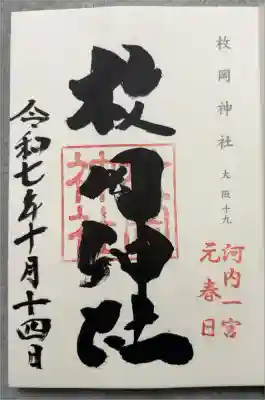 枚岡神社 大阪十九
河内一宮
元春日
枚岡神社
枚岡神社
令和七年十月十四日